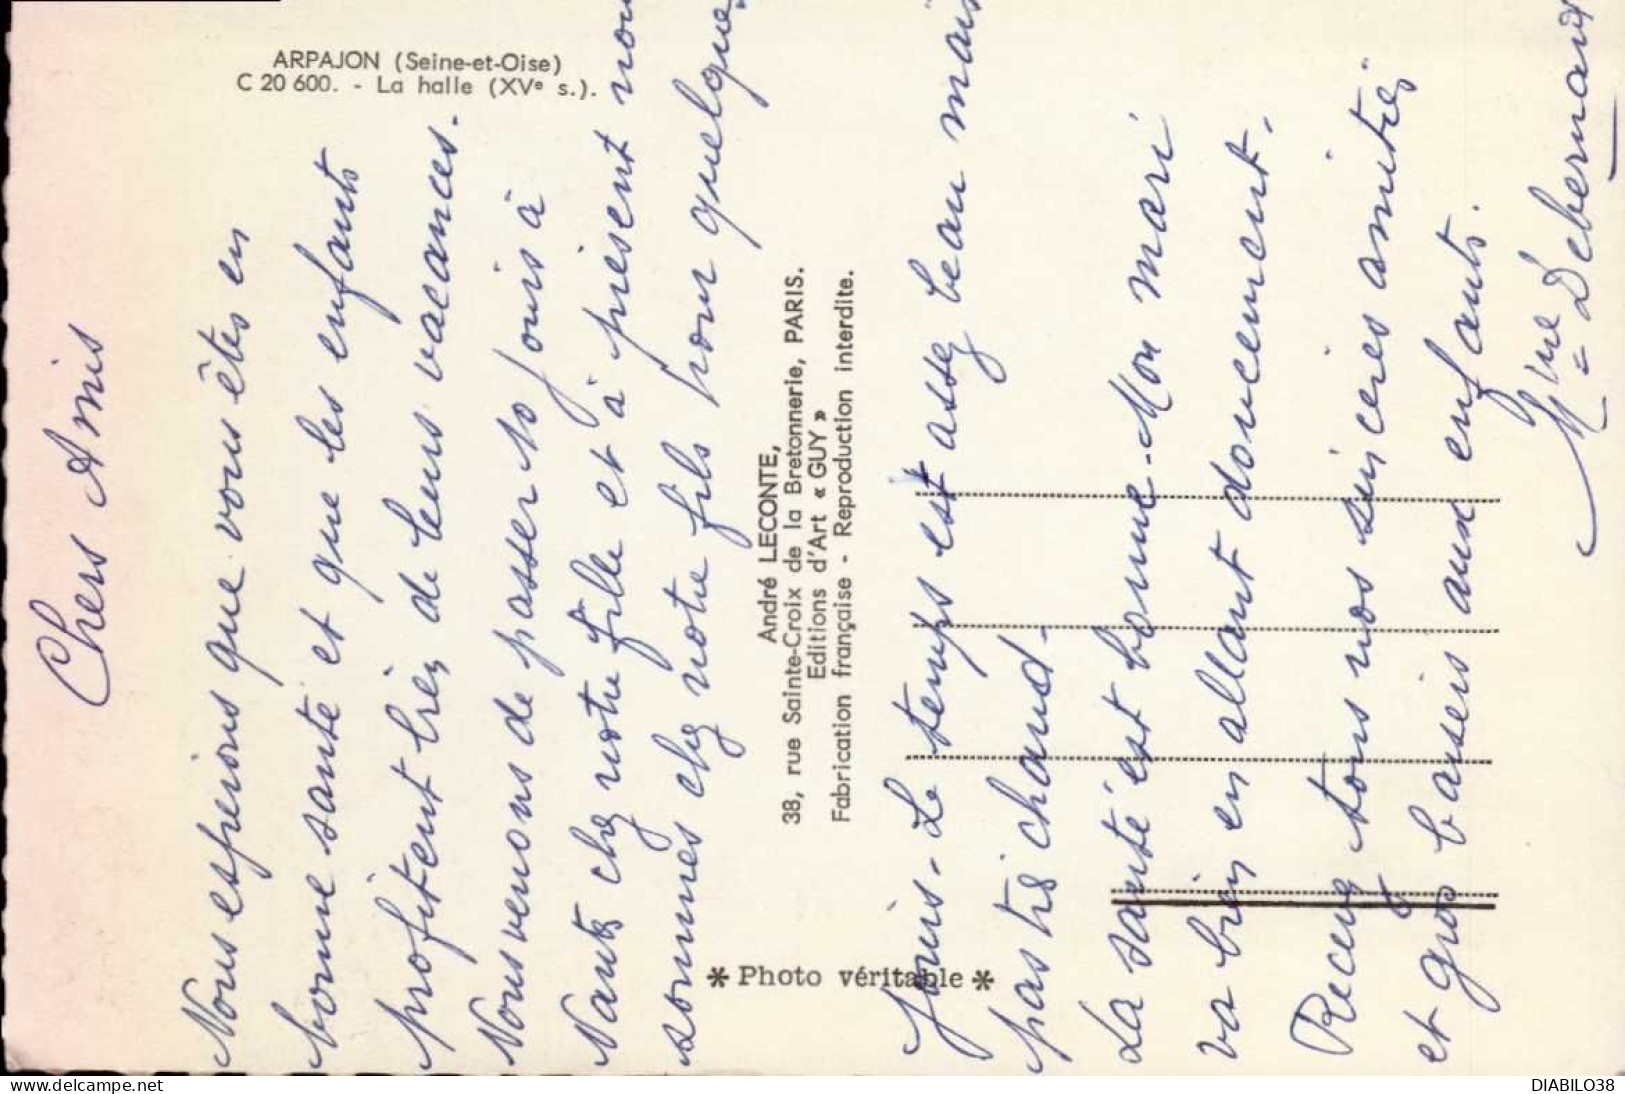 ARPAJON (Seine-et-Oise)
C 20 600. - La halle (XVe s.).
Chers Amis
Nous espérons que vous êtes en
bonne santé et que les enfants
profitent très de leurs vacances.
Nous venons de passer 10 jours à
Nantes chez notre fille et à présent nous
sommes chez notre fils pour quelques
jours - Le temps est assez beau mais
pas très chaud -
La santé est bonne - Mon mari
va bien en allant doucement -
Recevez tous nos sincères amitiés
et gros baisers aux enfants.
Mme Debernard
André LECONTE,
38, rue Sainte-Croix de la Bretonnerie, PARIS.
Editions d'Art « GUY »
Fabrication française - Reproduction interdite.
* Photo véritable *
delcampe.net
DIABILO38